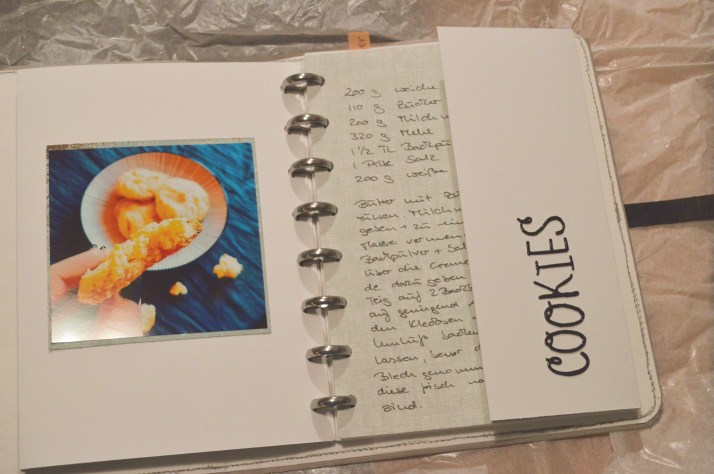 200 g weiche
110 g Zucker
200 g Milchm
320 g Mehl
1 1/2 TL Backpu
1 Prise Salz
200 g weiße
Butter mit Zu
rühren. Milchm
geben + zu ein
Masse vermen
Backpulver + Sal
über die Creme
de dazu geben
Teig auf 2 Backb
auf genügend
den Klecksen
Umluft backen
lassen, bevor d
Blech genomm
diese frisch no
sind.
COOKIES